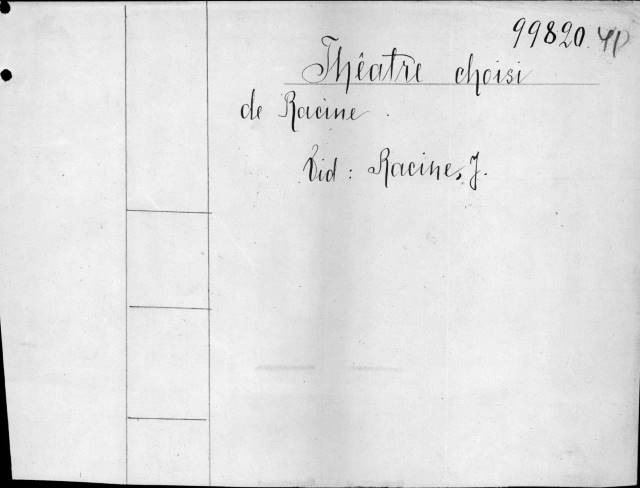 99820
Théâtre choisi
de Racine.
Vid: Racine, J.